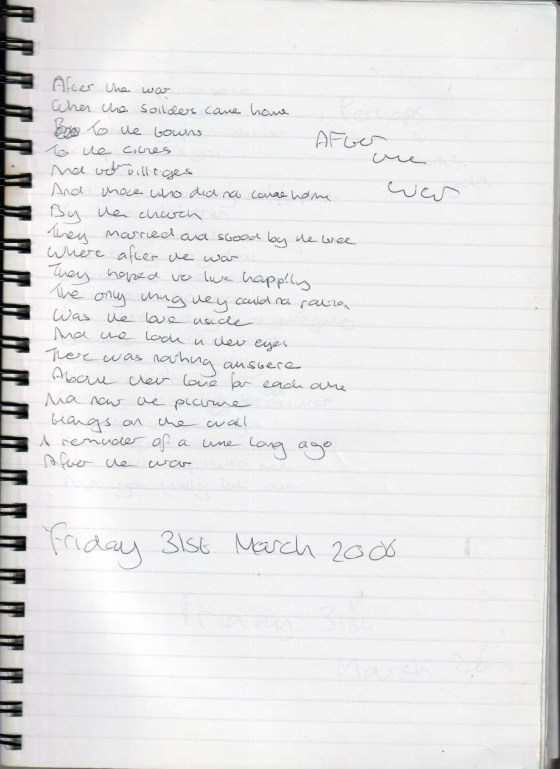 After the war
When the soilders came home
To the towns
To the cities
And villiges
And those who did not come home
By the church
They married and stood by the tree
Where after the war
They hoped to live happily
The only thing they could not
Was the love inside
And the look in their eyes
There was nothing
About their love for each one
And now the picture
Hangs on the wall
A reminder of a time long ago
After the war
AFter
the
war
Friday 31st March 2006